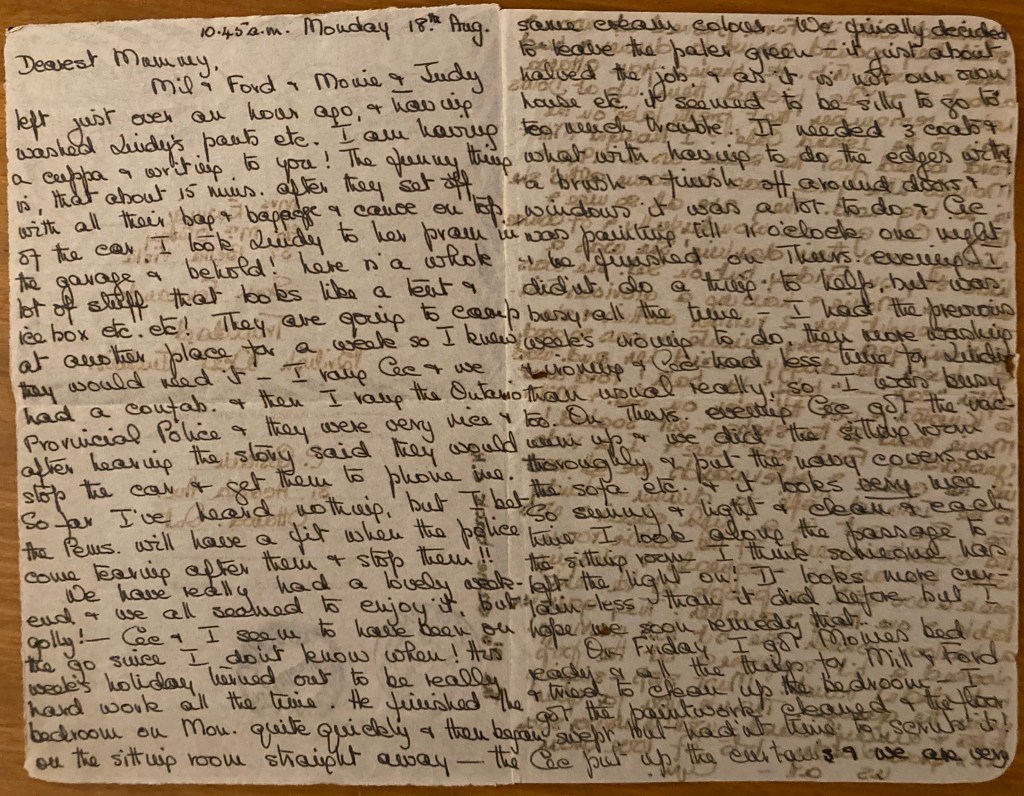 10.45 a.m. Monday 18th Aug.
Dearest Mummy,
Mil & Ford & Monie & Judy
left just over an hour ago, & having
washed Lindy's pants etc. I am having
a cuppa & writing to you! The funny thing
is, that about 15 mins. after they set off
with all their bag & baggage & canoe on top
of the car, I took Lindy to her pram in
the garage & behold! here is a whole
lot of stuff that looks like a tent &
ice box etc. etc! They are going to camp
at another place for a week so I knew
they would need it — I rang Cec & we
had a confab. & then I rang the Ontario
Provincial Police & they were very nice &
after hearing the story said they would
stop the car & get them to phone me.
So far I've heard nothing, but I bet
the Pems. will have a fit when the police
come tearing after them & stop them!!
We have really had a lovely week-
end & we all seemed to enjoy it, but
golly! — Cec & I seem to have been on
the go since I don't know when! This
week's holiday turned out to be really
hard work all the time. He finished the
bedroom on Mon. quite quickly & then began
on the sitting room straight away — the
same cream colour. We finally decided
to leave the paler green — it just about
halved the job & as it is not our own
house etc. it seemed to be silly to go to
too much trouble. It needed 3 coats &
what with having to do the edges with
a brush & finish off around doors &
windows it was a lot to do & Cec
was painting till 11 o'clock one night
he finished on Thurs. evening. I
didn't do a thing to help, but was
busy all the time — I had the previous
week's ironing to do, then more washing
& ironing & Cec had less time for Lindy
than usual really, so I was busy
too. On Thurs. evening Cec got the vac-
uum up & we did the sitting room
thoroughly & put the navy covers on
the sofa etc. & it looks very nice.
So sunny & light & clean & each
time I look along the passage to
the sitting room I think someone has
left the light on! It looks more cur-
tain-less than it did before but I
hope we soon remedy that.
On Friday I got Monie's bed
ready & all the things for Mill & Ford
& tried to clean up the bedroom — I
got the paintwork cleaned & the floor
swept but hadn't time to scrub it!
Cec put up the curtains & we are very